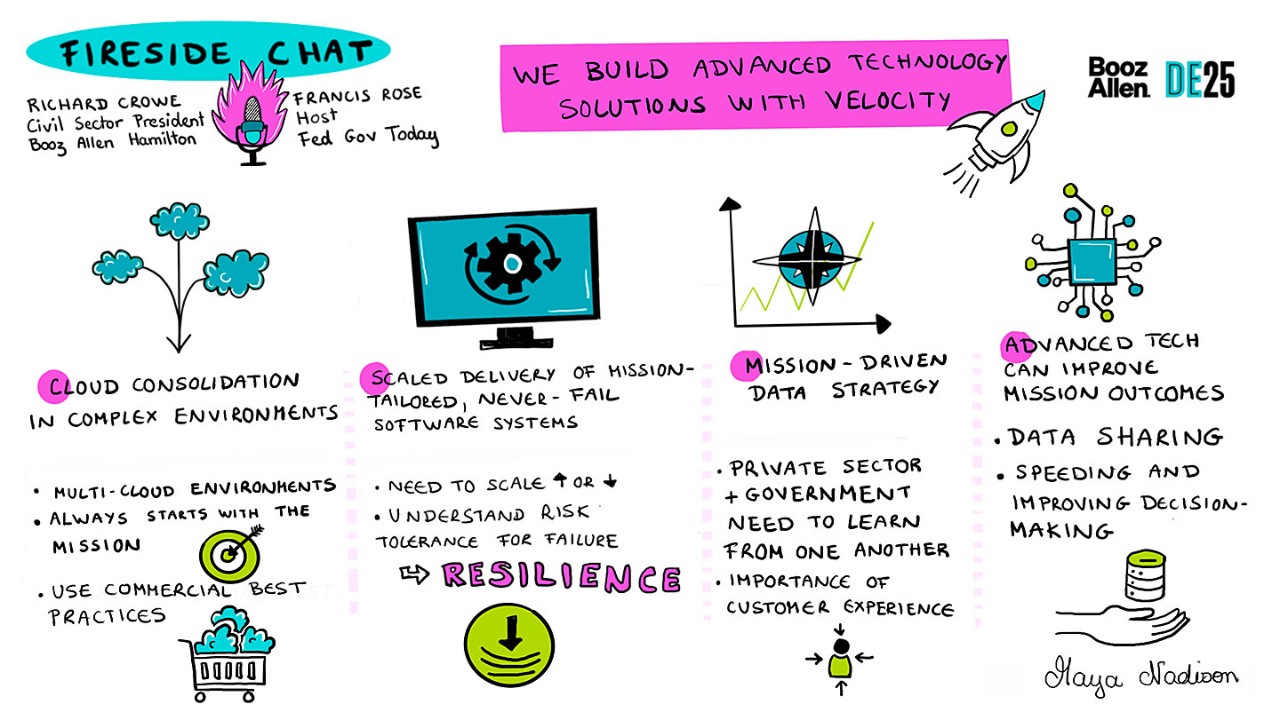 FIRESIDE CHAT
RICHARD CROWE
Civil Sector President
Booz Allen Hamilton
FRANCIS ROSE
Host
Fed Gov Today
WE BUILD ADVANCED TECHNOLOGY
SOLUTIONS WITH VELOCITY
Booz
Allen®
DE25
CLOUD CONSOLIDATION
IN COMPLEX ENVIRONMENTS
• MULTI-CLOUD ENVIRONMENTS
• ALWAYS STARTS WITH THE
MISSION
• USE COMMERCIAL BEST
PRACTICES
SCALED DELIVERY OF MISSION-
TAILORED, NEVER-FAIL
SOFTWARE SYSTEMS
• NEED TO SCALE ↑ OR ↓
• UNDERSTAND RISK
TOLERANCE FOR FAILURE
⇨ RESILIENCE
MISSION-DRIVEN
DATA STRATEGY
• PRIVATE SECTOR
+ GOVERNMENT
NEED TO LEARN
FROM ONE ANOTHER
• IMPORTANCE OF
CUSTOMER EXPERIENCE
ADVANCED TECH
CAN IMPROVE
MISSION OUTCOMES
• DATA SHARING
• SPEEDING AND
IMPROVING DECISION-
MAKING
Maya Nadison